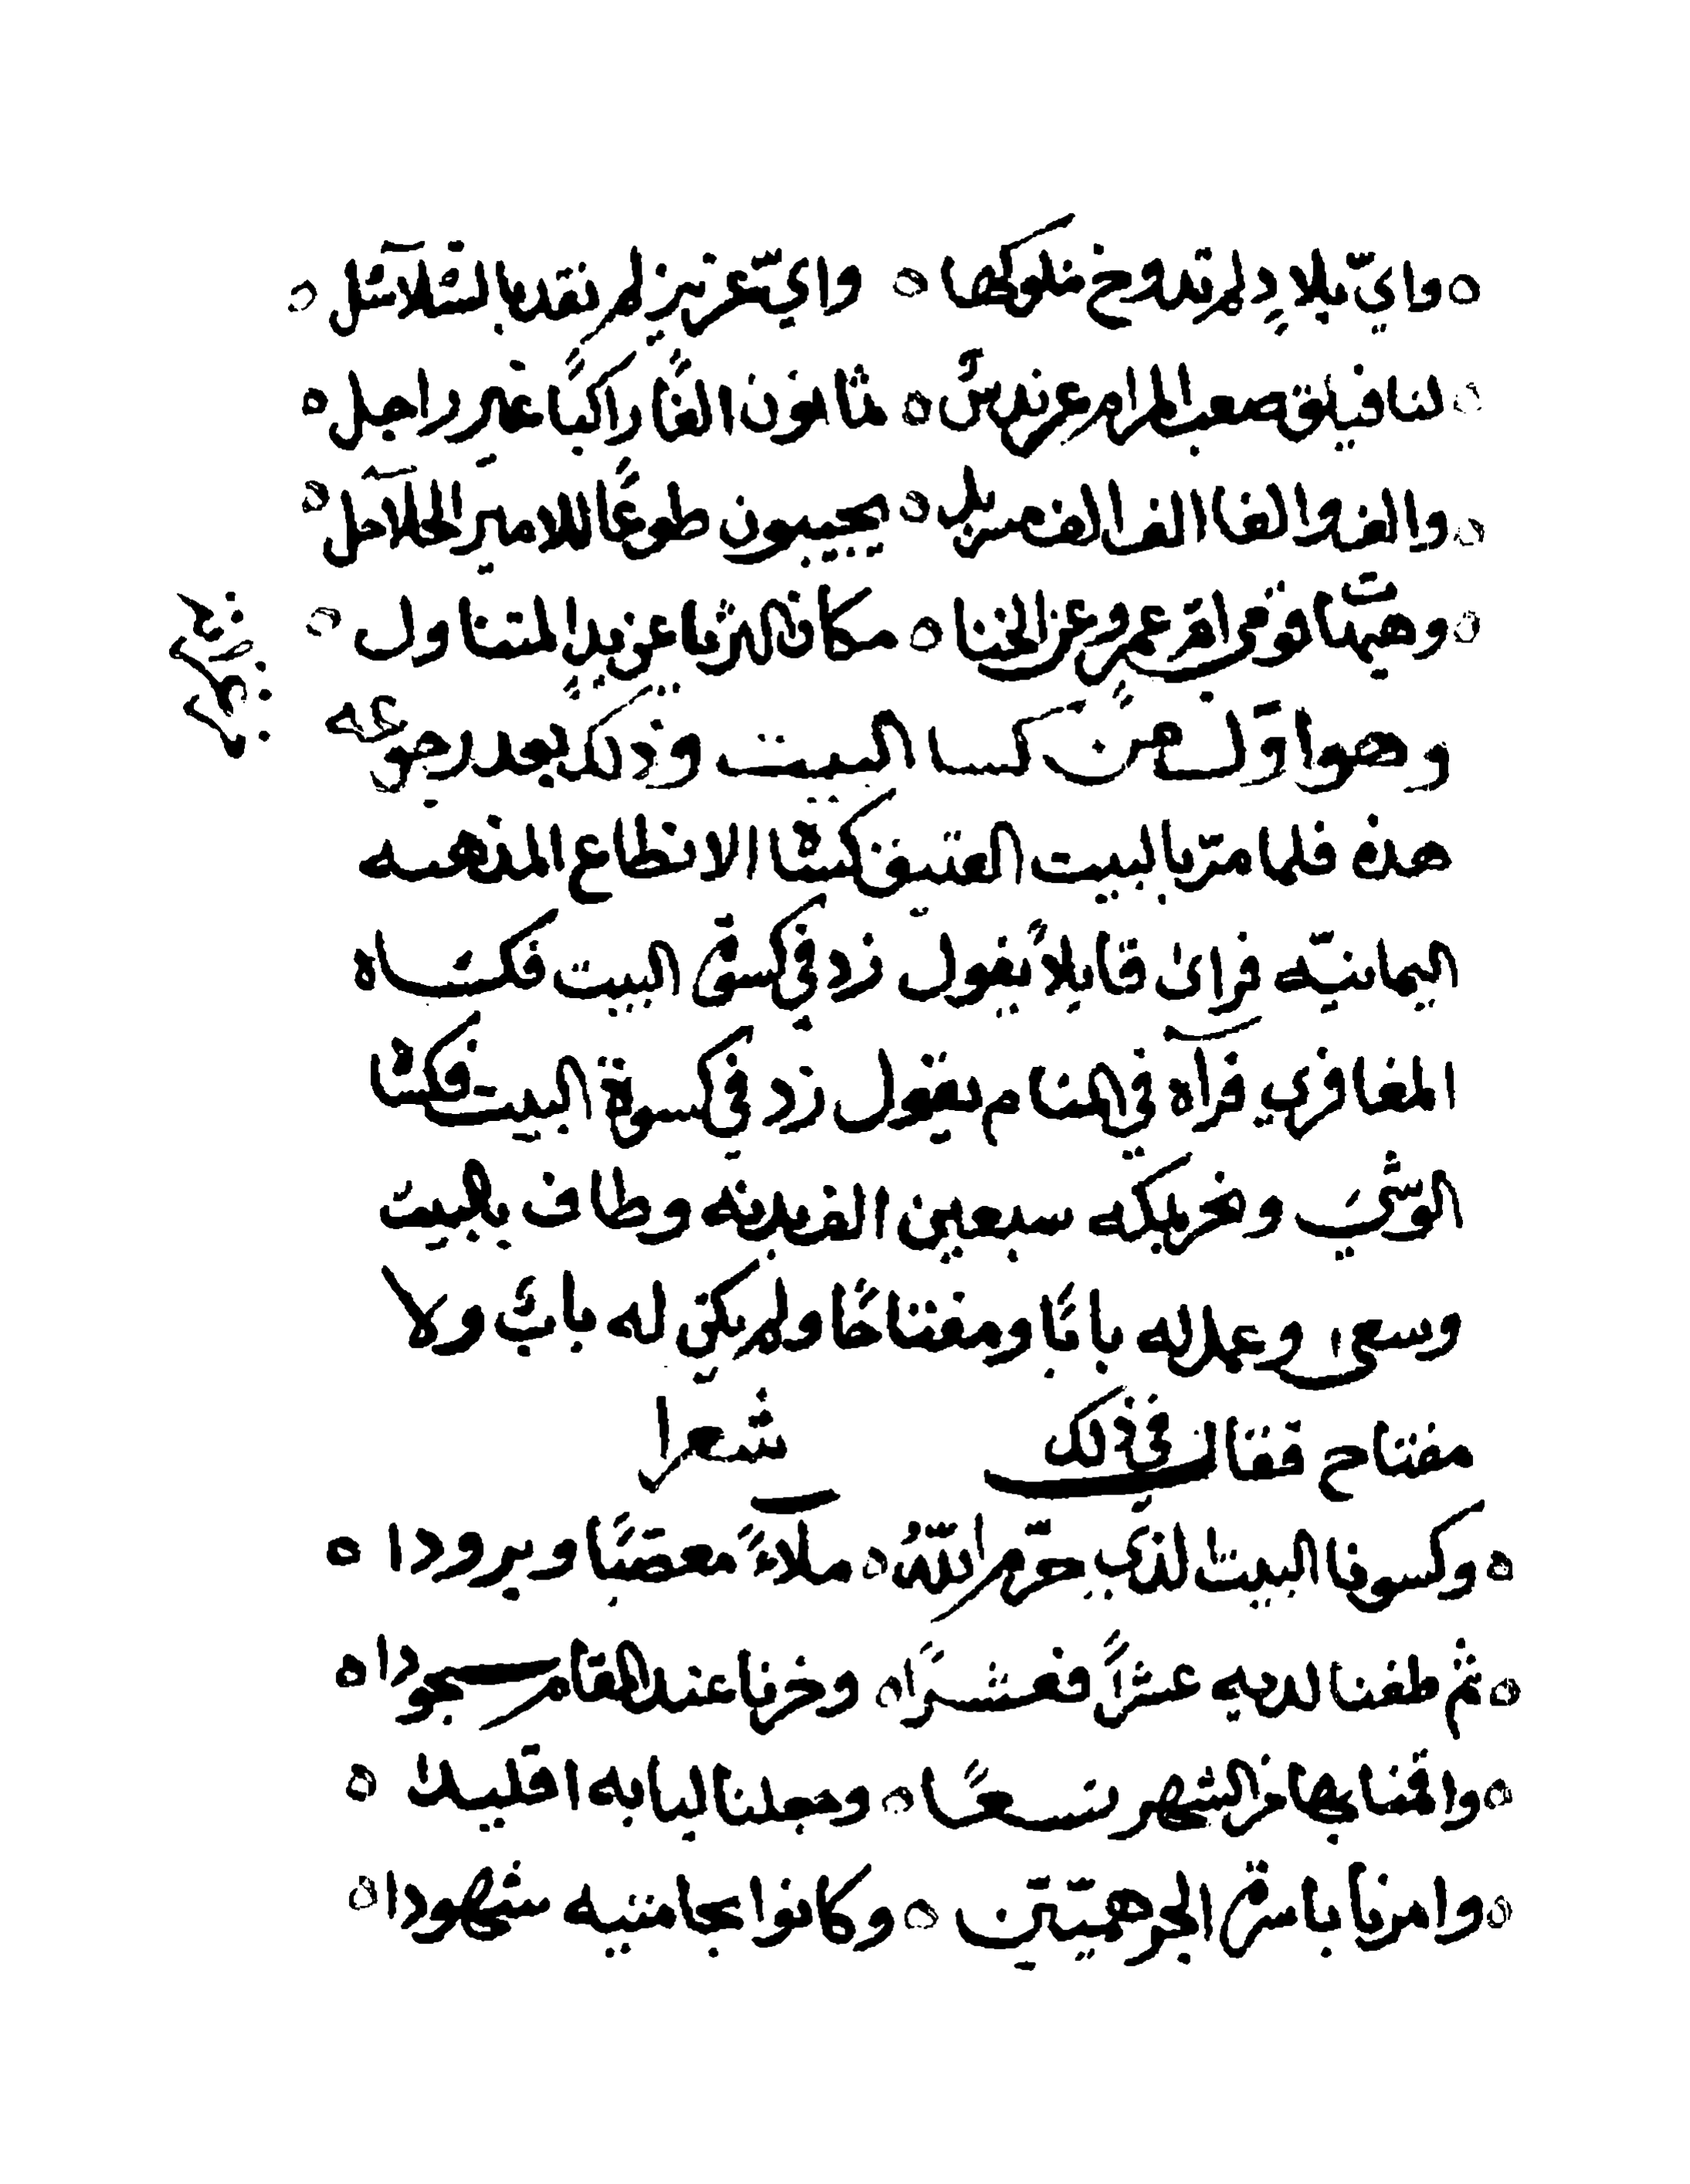 وايّ بلادٍ لم تدوخ ملوكها ه واي عزيز لم نقد بالسّلاسل ه
لنا فيلق صعب المرام عرندس ه ثمانون الفًا راكبًا غير راجل ه
والف والفا الف الف مسربل ه يجيبون طوعًا للامير الحلاحل ه
قومي عمرو مكان الثريا المتناول ه
وهو اوّل من كسا البيت وذلك بعد رجوعه
هذه فلما مرّ بالبيت العتيق كسا الانطاع المذهبه
اليمانيّه فراى قايلاً يقول زد في كسوة البيت فكساه
المغافري فرآه في المنام يقول زد في كسوة البيت فكسا
الوشي ونحر بمكه سبعين الف بدنه وطاف بالبيت
وسعى وعمل له بابًا ومفتاحًا ولم يكن له بابٌ ولا
مفتاح فقال في ذلك شعرا
ه وكسونا البيت الذي حرّم اللّهُ ه ملاءً معصّبًا وبرودا ه
ه ثم طفنا لديه عشرًا فعشرًا ه وخرنا عند المقام سجودا ه
ه واقمنا بها من الشهر تسعًا ه وجعلنا لبابه اقليدا ه
ه وامرنا باسرة الجرهميّين ه وكانوا بجامتيه شهودا ه